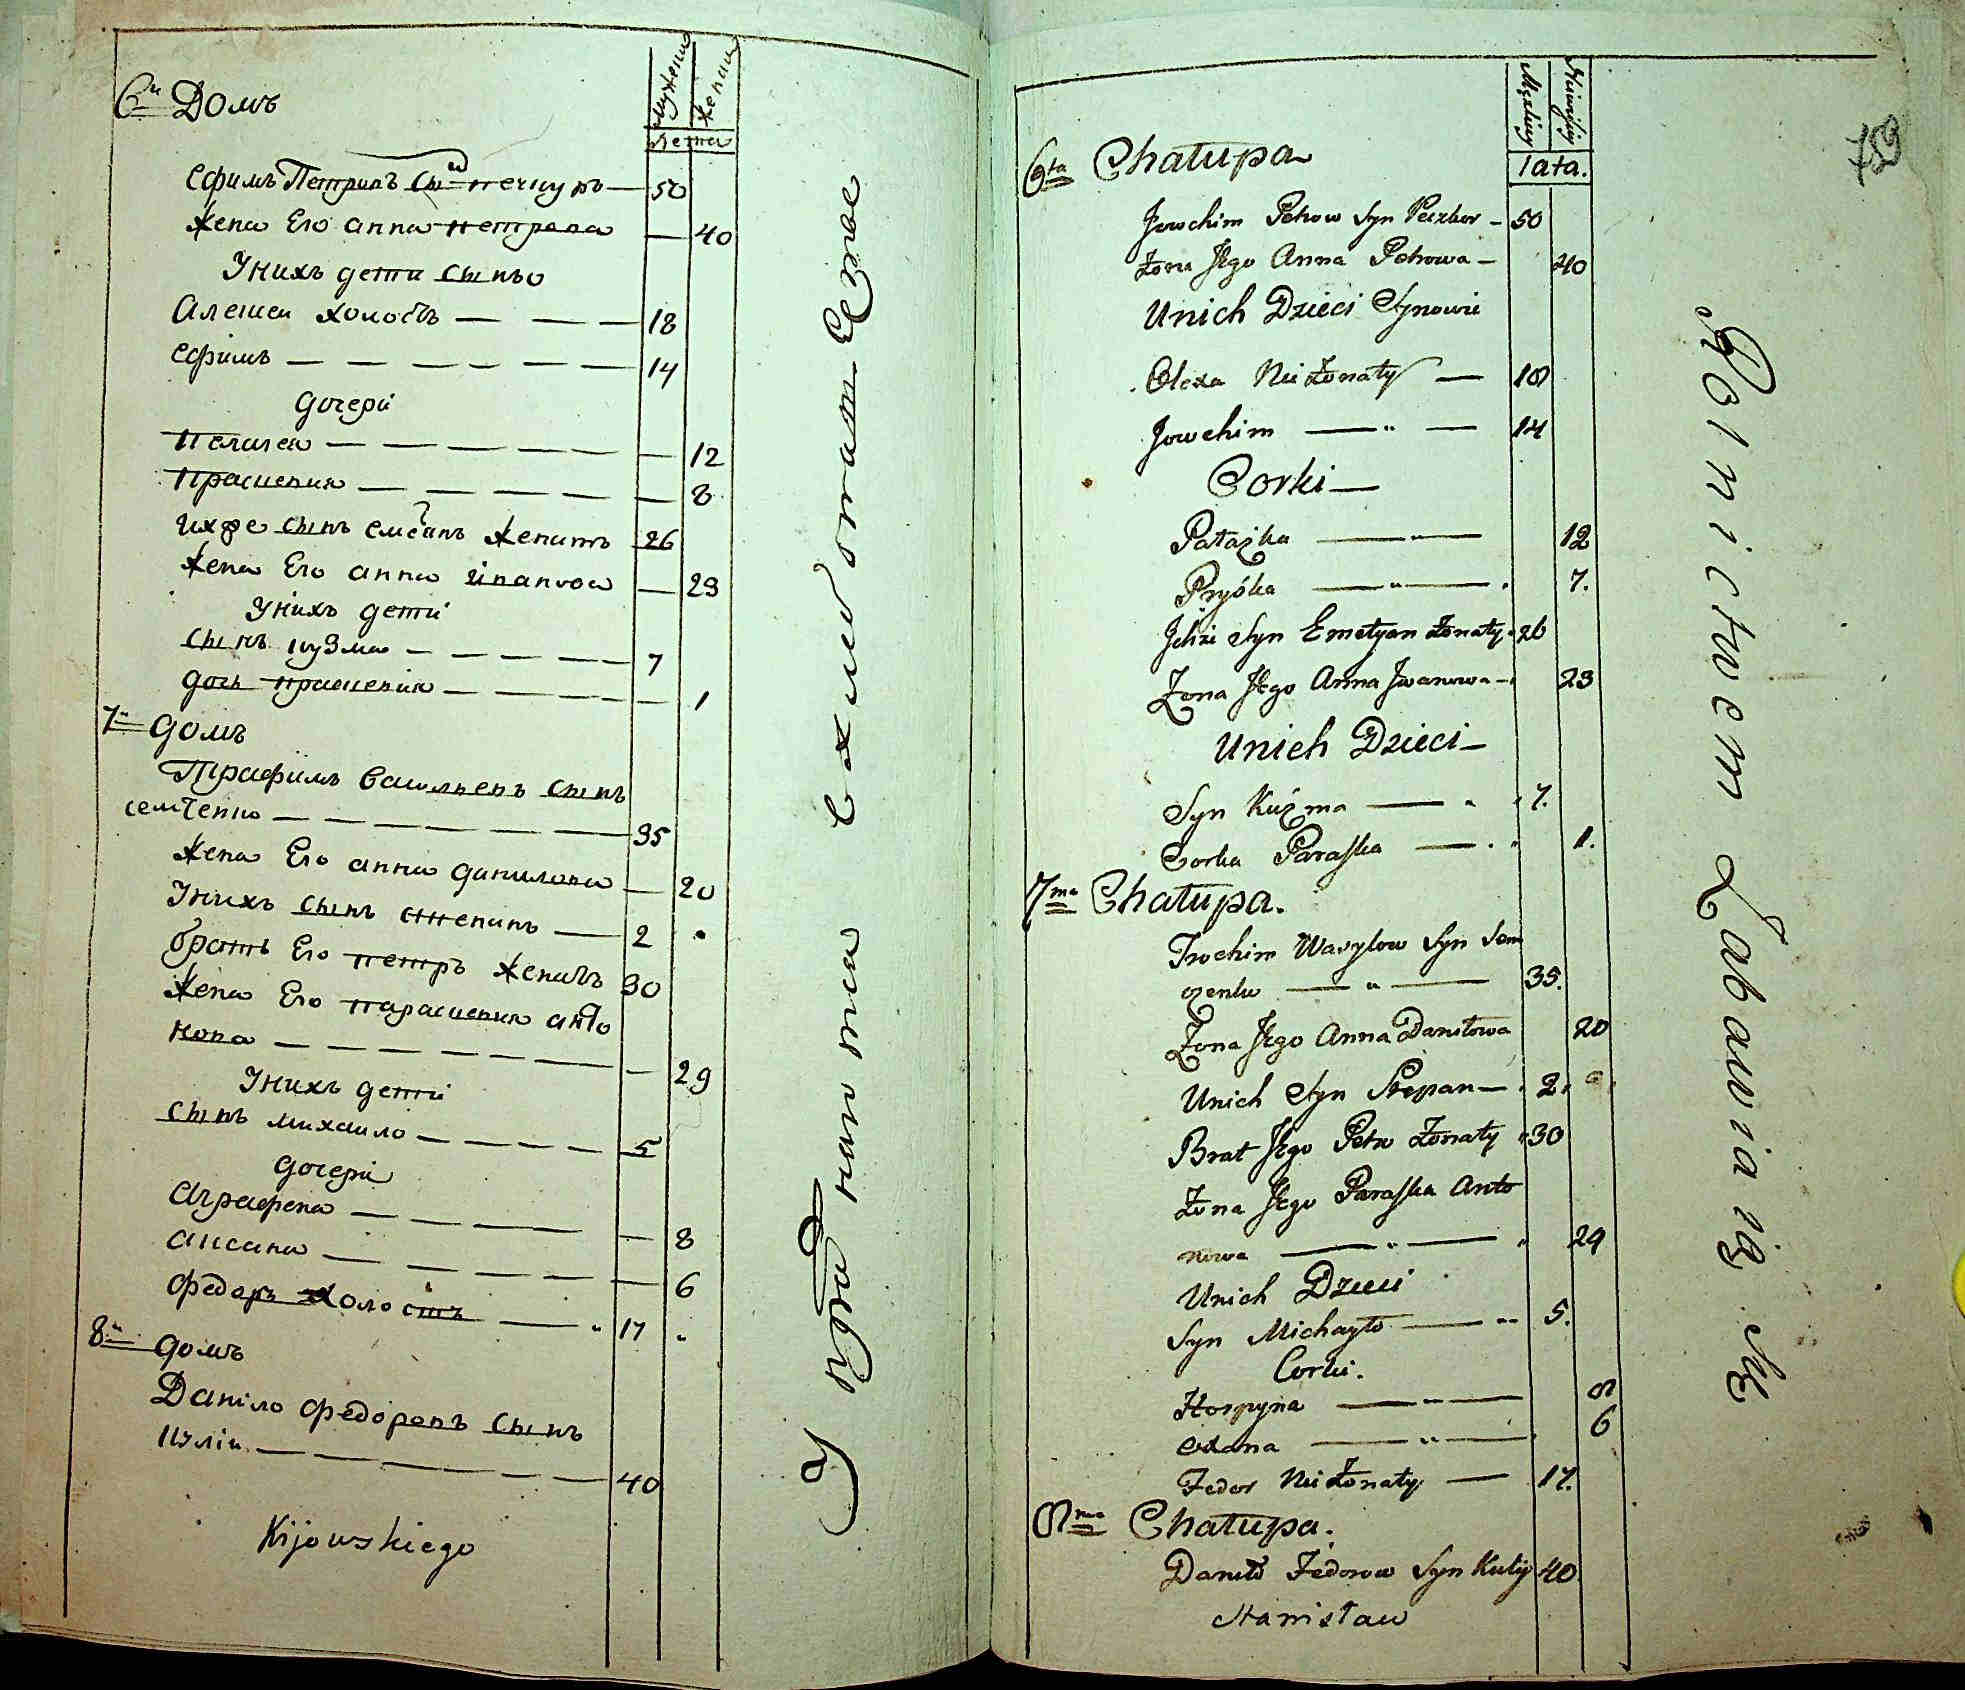 6й Домъ
мужеии женаи
Лета
Ефимъ Петривъ сынъ печкуръ — 50
Жена Его анна петрова — 40
У нихъ дети сынъо
Алексеи холостъ — — — 18
Ефимъ — — — — — — 14
дочери
Пелагея — — — — — — 12
Прасковия — — — — — 8
ихже сынъ емелянъ женатъ 26
Жена Его анна иванова — 23
У нихъ дети
сынъ кузма — — — — — 7
дочь прасковия — — — — — 1
7й домъ
Трафимъ васильевъ сынъ
семченко — — — — — — 35
Жена Его анна данилова — 20
У нихъ сынъ степанъ — 2
братъ Его петръ женатъ 30
Жена Его параскевия анто
нова — — — — — — — 29
У нихъ дети
сынъ михаило — — — — — 5
дочери
Аграфена — — — — — 8
аксана — — — — — — 6
федоръ холостъ — 17
8й домъ
Данiло федоровъ сынъ
кулiи — — — — — — — 40
Kijowskiego
759
Męskiey Zeńskiey
lata.
6ta Chałupa
Jowchim Petrow Syn Peczkur — 50
Żona Jego Anna Petrowa — 40
Unich Dzieci Synowie
Olexa NieŻonaty — 18
Jowchim — " — 14
Corki —
Pałażka — " — 12
Pryśka — " — 7.
Jchże Syn Emelyan Żonaty 26
Żona Jego Anna Jwanowa — 23
Unich Dzieci —
Syn Kuźma — " 7.
Corka Paraska — " 1.
7ma Chałupa.
Trochim Wasylow Syn Sem
czenko — " — 35.
Żona Jego Anna Daniłowa 20
Unich Syn Stepan — 2.
Brat Jego Petro Żonaty 30
Żona Jego Paraska Anto
nowa — " — 29
Unich Dzieci
Syn Michayło — " 5.
Corki.
Hospyna — " — 8
Oxana — " — 6
Fedor NieŻonaty — 17.
8ma Chałupa.
Daniło Fedorow Syn Kuliy 40
Stanisław
Rolnictwem Zabawia iż Się